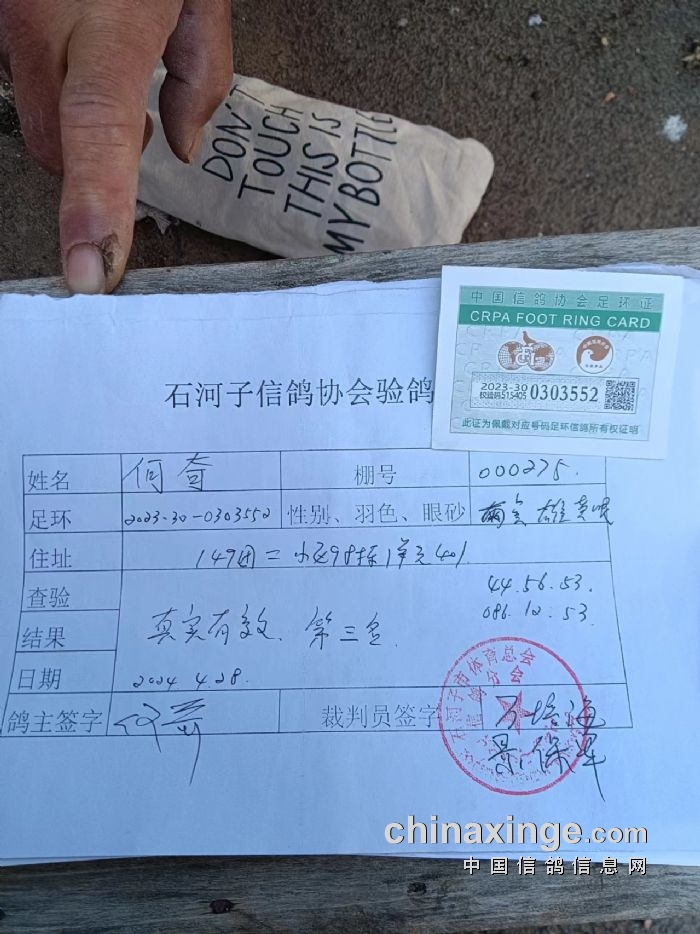 DON'T
TOUCH
THIS IS
MY BOTTLE
中国信鸽协会足环证
CRPA FOOT RING CARD
2023-30
校验码515405
0303552
此证为佩戴对应号码足环信鸽所有权证明
石河子信鸽协会验鸽
姓名 何奇 棚号 000275.
足环 2023-30-0303552 性别、羽色、眼砂 雄黄
住址 149团二小区98栋1单元401
查验 44.56.53.
086.12.53
结果 真实有效、第三名
日期 2024.4.28.
鸽主签字 何奇 裁判员签字
石河子市体育总会
信鸽分会
chinaxinge.com
中国信鸽信息网